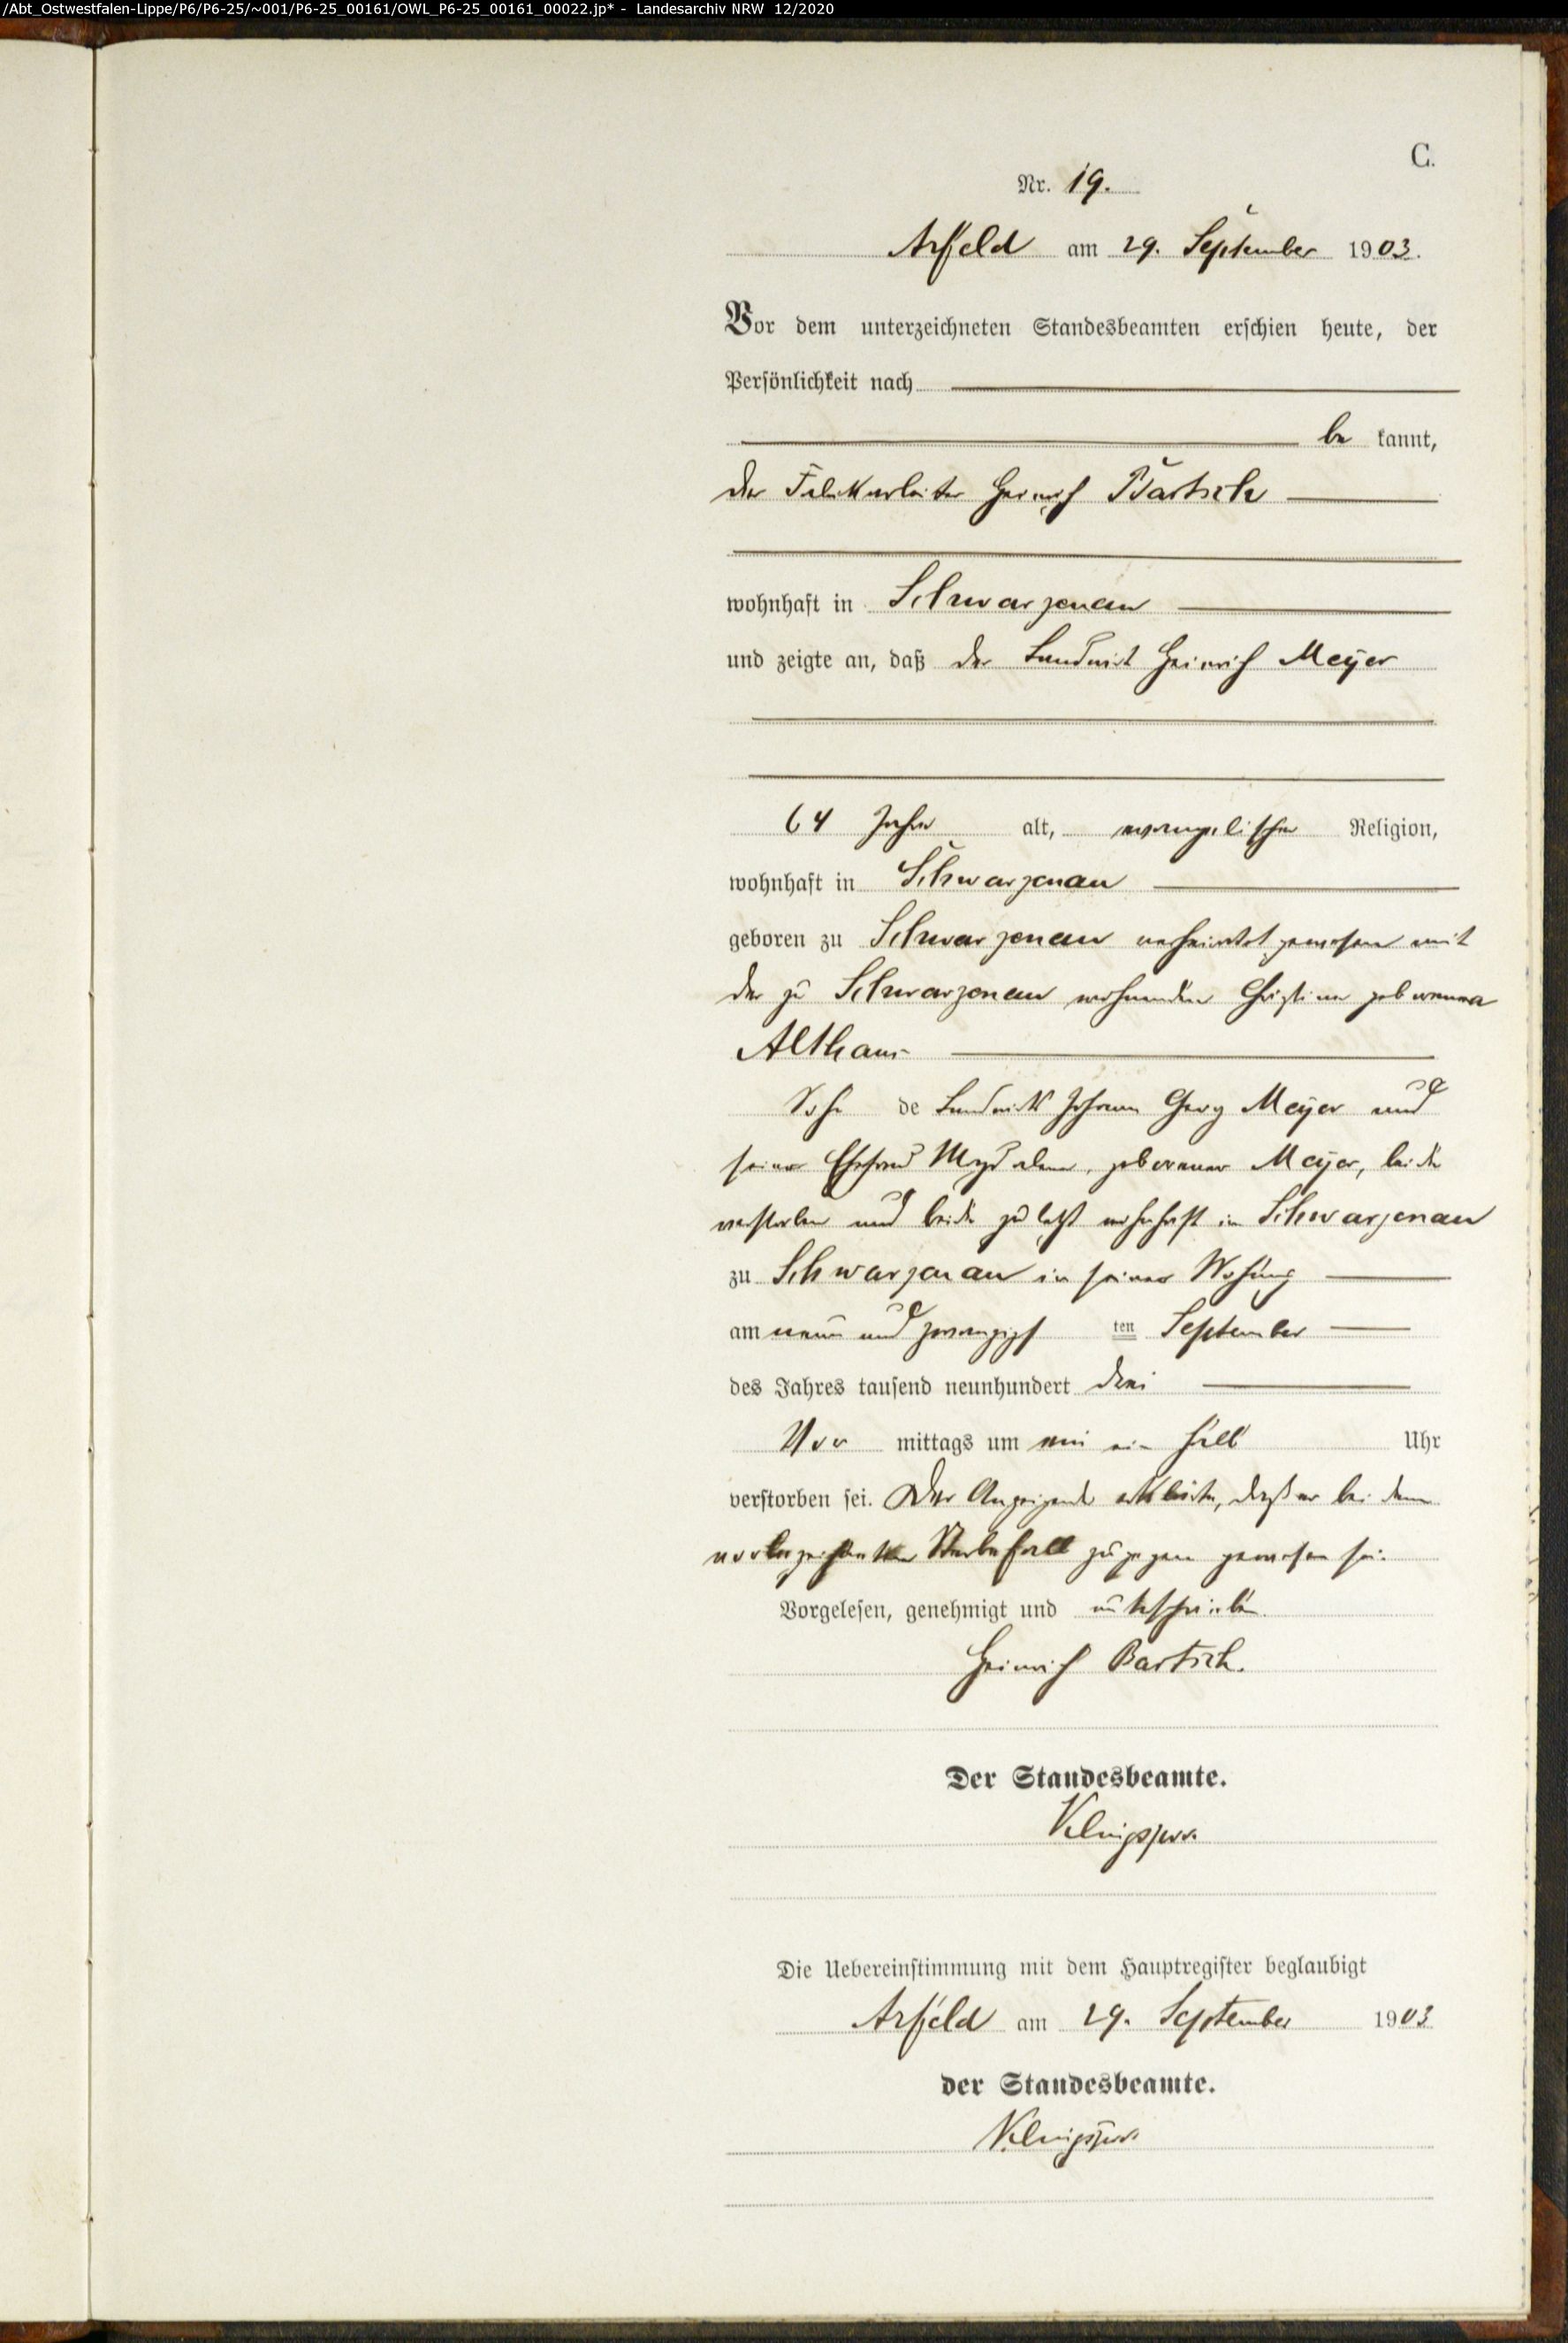 /Abt_Ostwestfalen-Lippe/P6/P6-25/~001/P6-25_00161/OWL_P6-25_00161_00022.jp* - Landesarchiv NRW 12/2020
C.
Nr. 19.
Arfeld am 29. September 1903.
Vor dem unterzeichneten Standesbeamten erschien heute, der
Persönlichkeit nach
be kannt,
der Fabrikarbeiter Heinrich Bartsch
wohnhaft in Schwarzenau
und zeigte an, daß der Landwirt Heinrich Meyer
64 Jahre alt, evangelischer Religion,
wohnhaft in Schwarzenau
geboren zu Schwarzenau verheiratet gewesen mit
der zu Schwarzenau wohnenden Christine geborenen
Althaus
Sohn des Landwirts Johann Georg Meyer und
seiner Ehefrau Magdalene, geborener Meyer, beide
verstorben und beide zuletzt wohnhaft in Schwarzenau
zu Schwarzenau in seiner Wohnung
am neun und zwanzigsten September
des Jahres tausend neunhundert drei
Vor mittags um ein halb Uhr
verstorben sei. Der Anzeigende erklärte, daß er bei dem
vorbezeichneten Sterbefall zugegen gewesen sei.
Vorgelesen, genehmigt und unterschrieben
Heinrich Bartsch.
Der Standesbeamte.
Die Uebereinstimmung mit dem Hauptregister beglaubigt
Arfeld am 29. September 1903
der Standesbeamte.